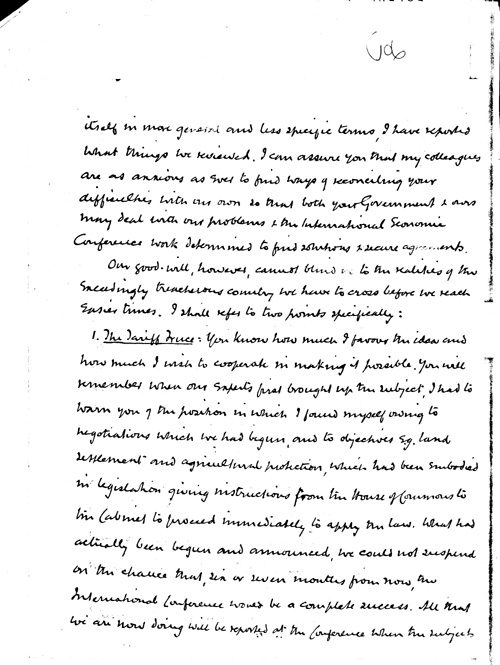 itself in more general and less specific terms, I have reported
what things we reviewed. I can assure you that my colleagues
are as anxious as ever to find ways of reconciling your
difficulties with our own so that both your Government & ours
may deal with our problems & the International Economic
Conference work determined to find solutions & secure agreements.
Our good-will, however, cannot blind us to the realities of the
exceedingly treacherous country we have to cross before we reach
easier times. I shall refer to two points specifically:
1. The Tariff Truce: You know how much I favour the idea and
how much I wish to cooperate in making it possible. You will
remember when our experts first brought up the subject, I had to
warn you of the position in which I found myself owing to
negotiations which we had begun, and to objectives e.g. land
settlement and agricultural protection, which had been embodied
in legislation giving instructions from the House of Commons to
the Cabinet to proceed immediately to apply the law. What had
actually been begun and announced, we could not suspend
on the chance that, six or seven months from now, the
International Conference would be a complete success. All that
we are now doing will be reported at the Conference when the subjects